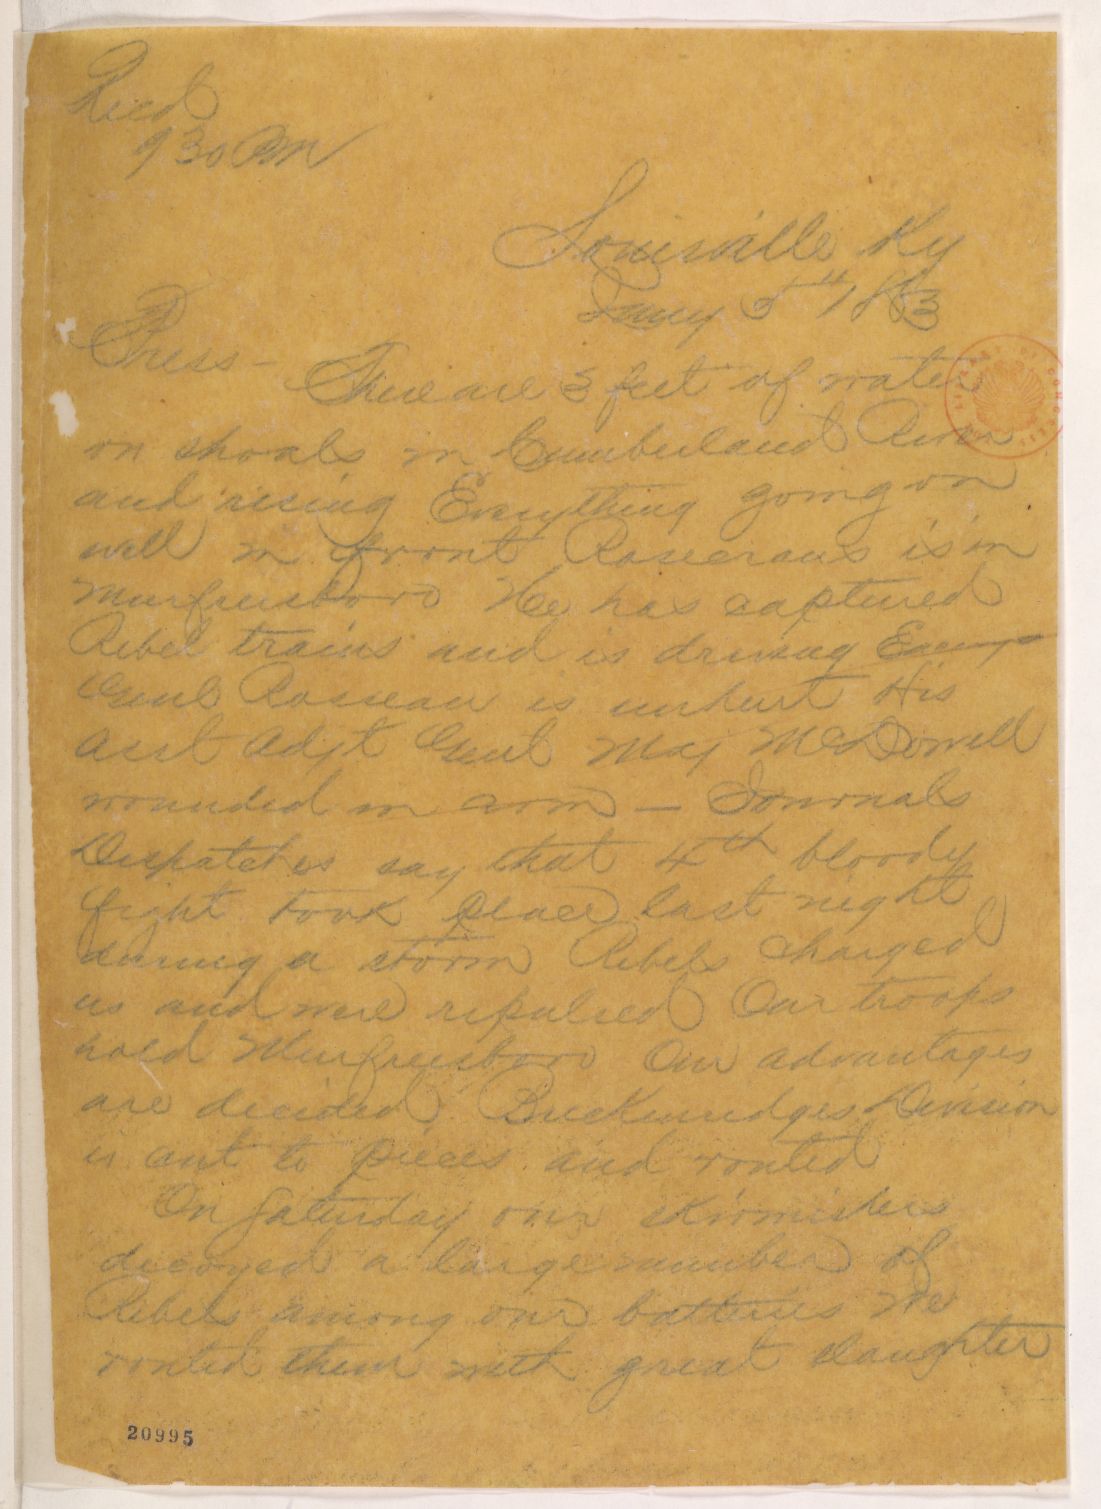 Recd
9 30 Pm
Louisville Ky
Jany 5th 1863
Press - There are 5 feet of water
on shoals in Cumberland River
and rising Everything going on
well in front Rosecrans is in
Murfreesboro He has captured
Rebel trains and is driving Enemy
Genl Rosseau is unhurt His
Asst Adjt Genl Maj McDowell
wounded in arm — Journals
Dispatches say that 4th bloody
fight took place last night
during a storm Rebels charged
us and were repulsed Our troops
hold Murfreesboro Our advantages
are decided. Breckenridges Division
is cut to pieces and routed
On Saturday our skirmishers
decoyed a large number of
Rebels among our batteries We
routed them with great slaughter
LIBRARY OF CONGRESS
20995